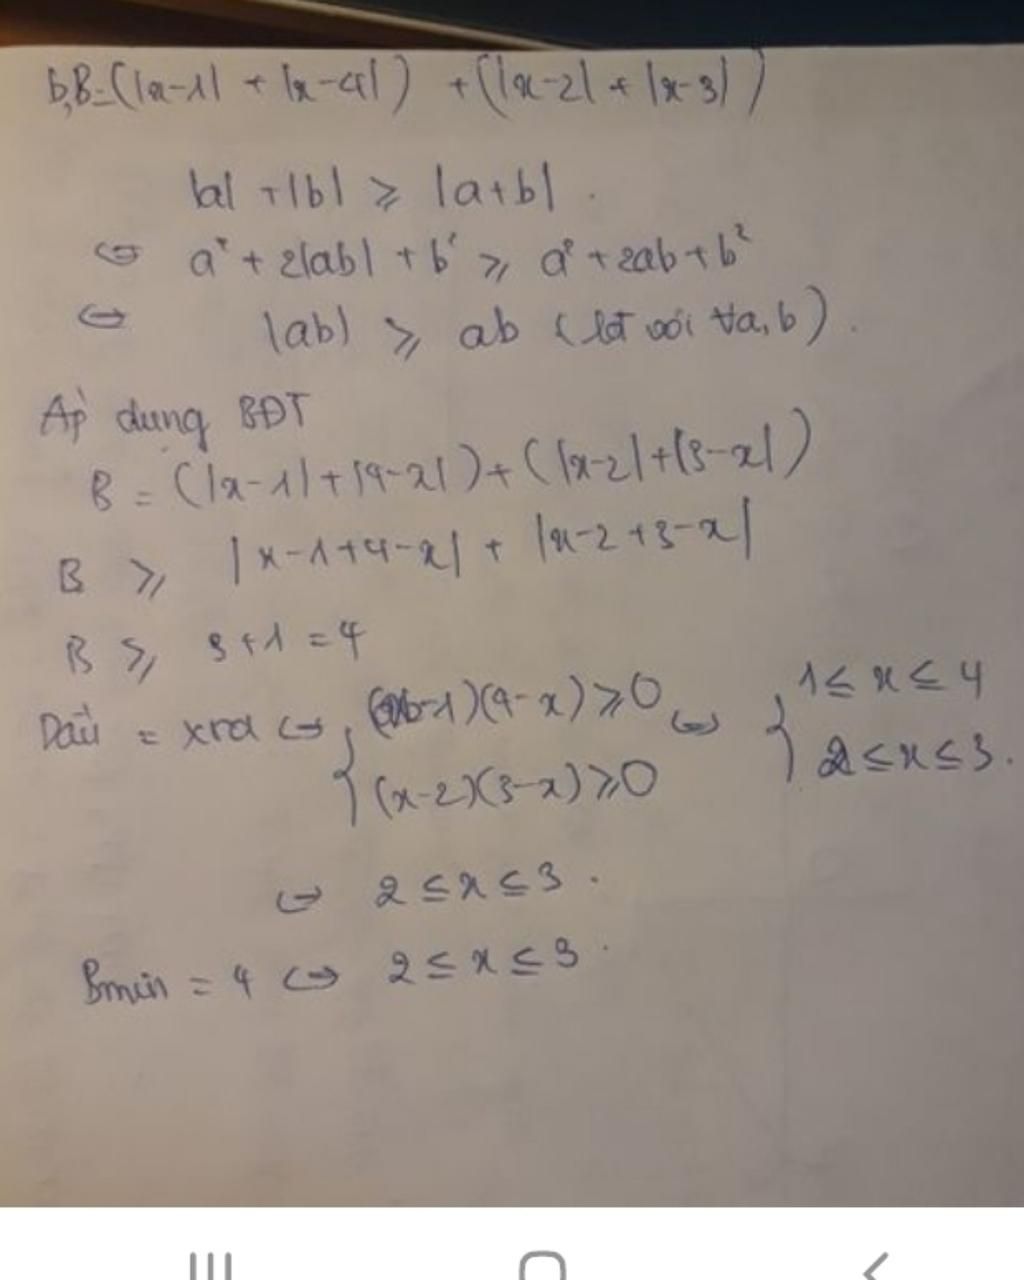 b, B = (|x-1| + |x-4|) + (|x-2| + |x-3|)
|a| + |b| ≥ |a+b|.
⇔ a² + 2|ab| + b² ≥ a² + 2ab + b²
⇔ |ab| ≥ ab (lđ với ∀a, b).
Áp dụng BĐT
B = (|x-1| + |4-x|) + (|x-2| + |3-x|)
B ≥ |x-1+4-x| + |x-2+3-x|
B ≥ 3+1 = 4
Dấu = xra ⇔ { (x-1)(4-x) ≥ 0 ⇔ { 1 ≤ x ≤ 4
(x-2)(3-x) ≥ 0 2 ≤ x ≤ 3.
⇔ 2 ≤ x ≤ 3.
Bmin = 4 ⇔ 2 ≤ x ≤ 3.